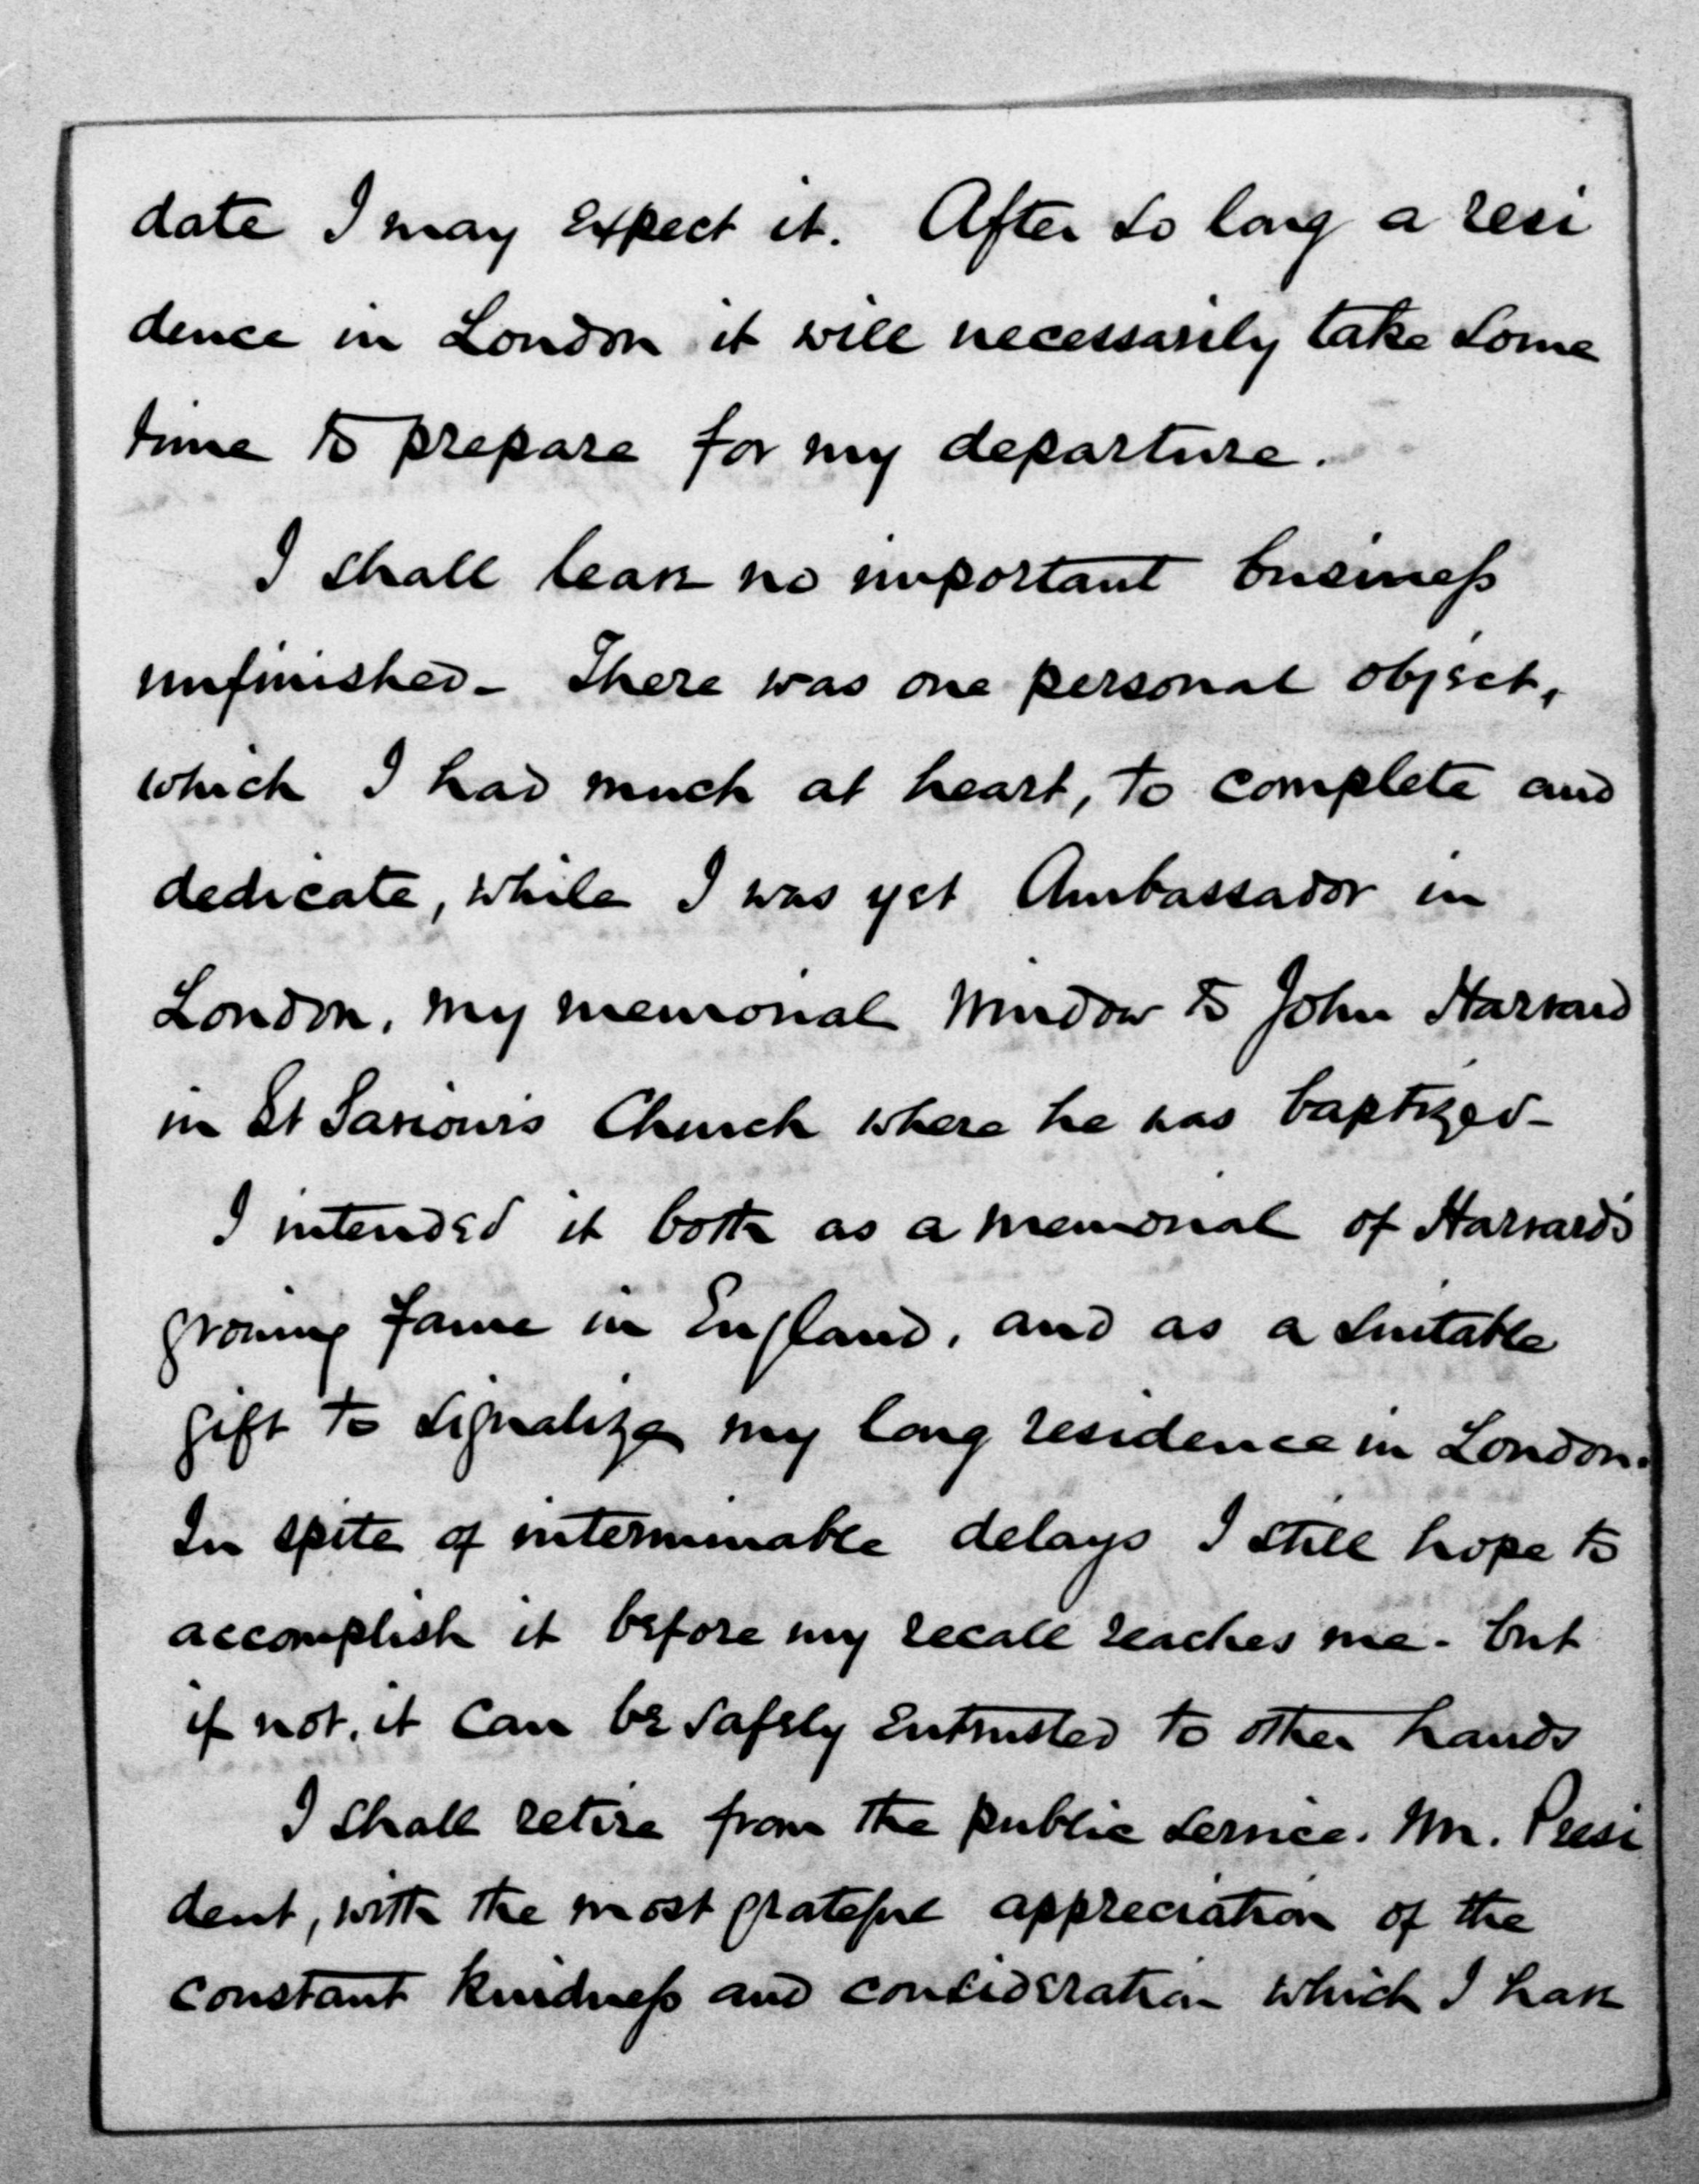 date I may expect it. After so long a resi
dence in London it will necessarily take some
time to prepare for my departure.
I shall leave no important business
unfinished - There was one personal object,
which I had much at heart, to complete and
dedicate, while I was yet Ambassador in
London, my memorial Window to John Harvard
in St Saviour's Church where he was baptized -
I intended it both as a memorial of Harvard's
growing fame in England, and as a suitable
gift to signalize my long residence in London.
In spite of interminable delays I still hope to
accomplish it before my recall reaches me - but
if not, it can be safely entrusted to other hands
I shall retire from the public service, Mr. Presi
dent, with the most grateful appreciation of the
constant kindness and consideration which I have